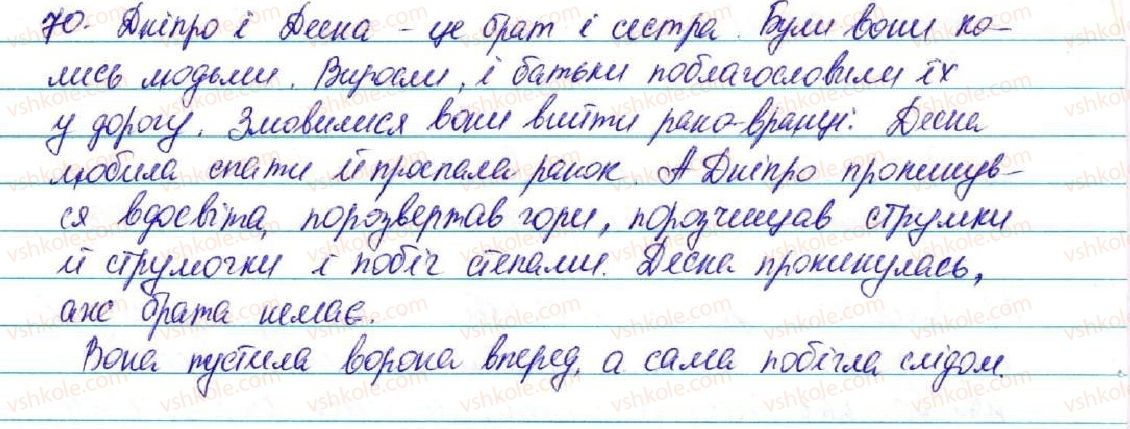 70. Дніпро і Десна – це брат і сестра. Були вони ко-
лись людьми. Виросли, і батьки поблагословили їх
у дорогу. Змовилися вони вийти рано-вранці. Десна
любила спати й проспала ранок. А Дніпро прокинув-
ся вдосвіта, порозвертав гори, порозчищав струмки
й струмочки і побіг степами. Десна прокинулась,
аж брата немає.
Вона пустила ворона вперед, а сама побігла слідом.